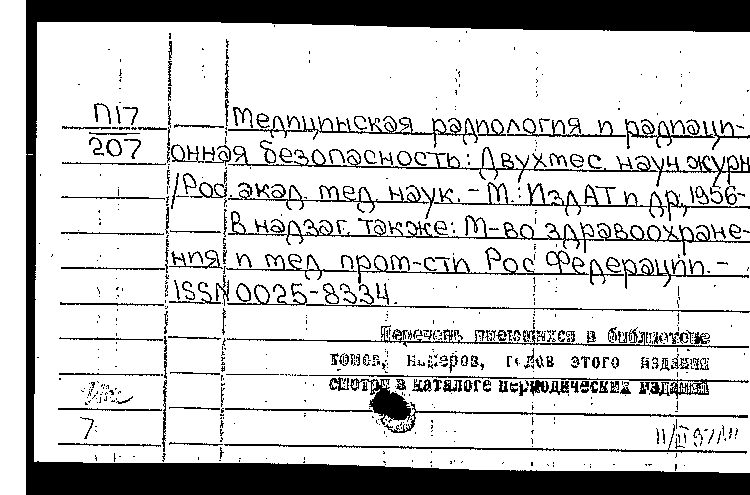 П17
207
Медицинская радиология и радиаци-
онная безопасность: Двухмес. науч. журн
/Рос. акад. мед. наук. - М.: ИздАТ и др., 1956-
В надзаг. также: М-во здравоохране-
ния и мед. пром-сти Рос. Федерации. -
ISSN 0025-8334.
Перечень имеющихся в библиотеке
томов, номеров, годов этого издания
смотри в каталоге периодических изданий
7